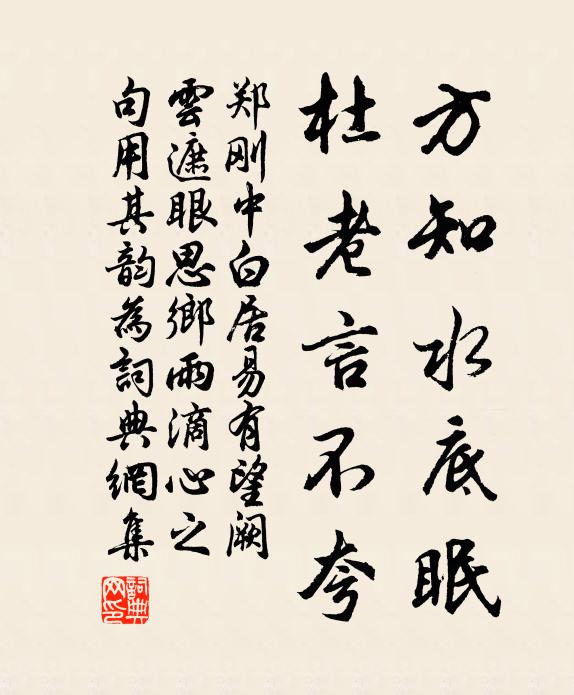 方知水底眠
杜老言不夸
郑刚中白居易有望阙
雲遮眼思鄉雨滴心之
句用其韵為詞典網集
詞典網印